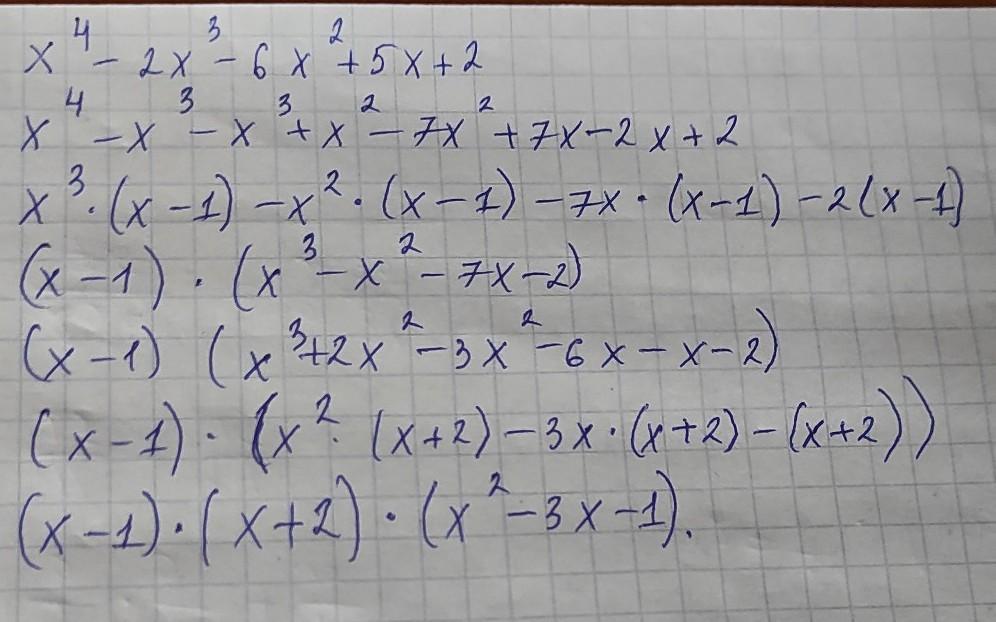 x⁴ - 2x³ - 6x² + 5x + 2
x⁴ - x³ - x³ + x² - 7x² + 7x - 2x + 2
x³ · (x - 1) - x² · (x - 1) - 7x · (x - 1) - 2(x - 1)
(x - 1) · (x³ - x² - 7x - 2)
(x - 1) (x³ + 2x² - 3x² - 6x - x - 2)
(x - 1) · (x² · (x + 2) - 3x · (x + 2) - (x + 2))
(x - 1) · (x + 2) · (x² - 3x - 1).